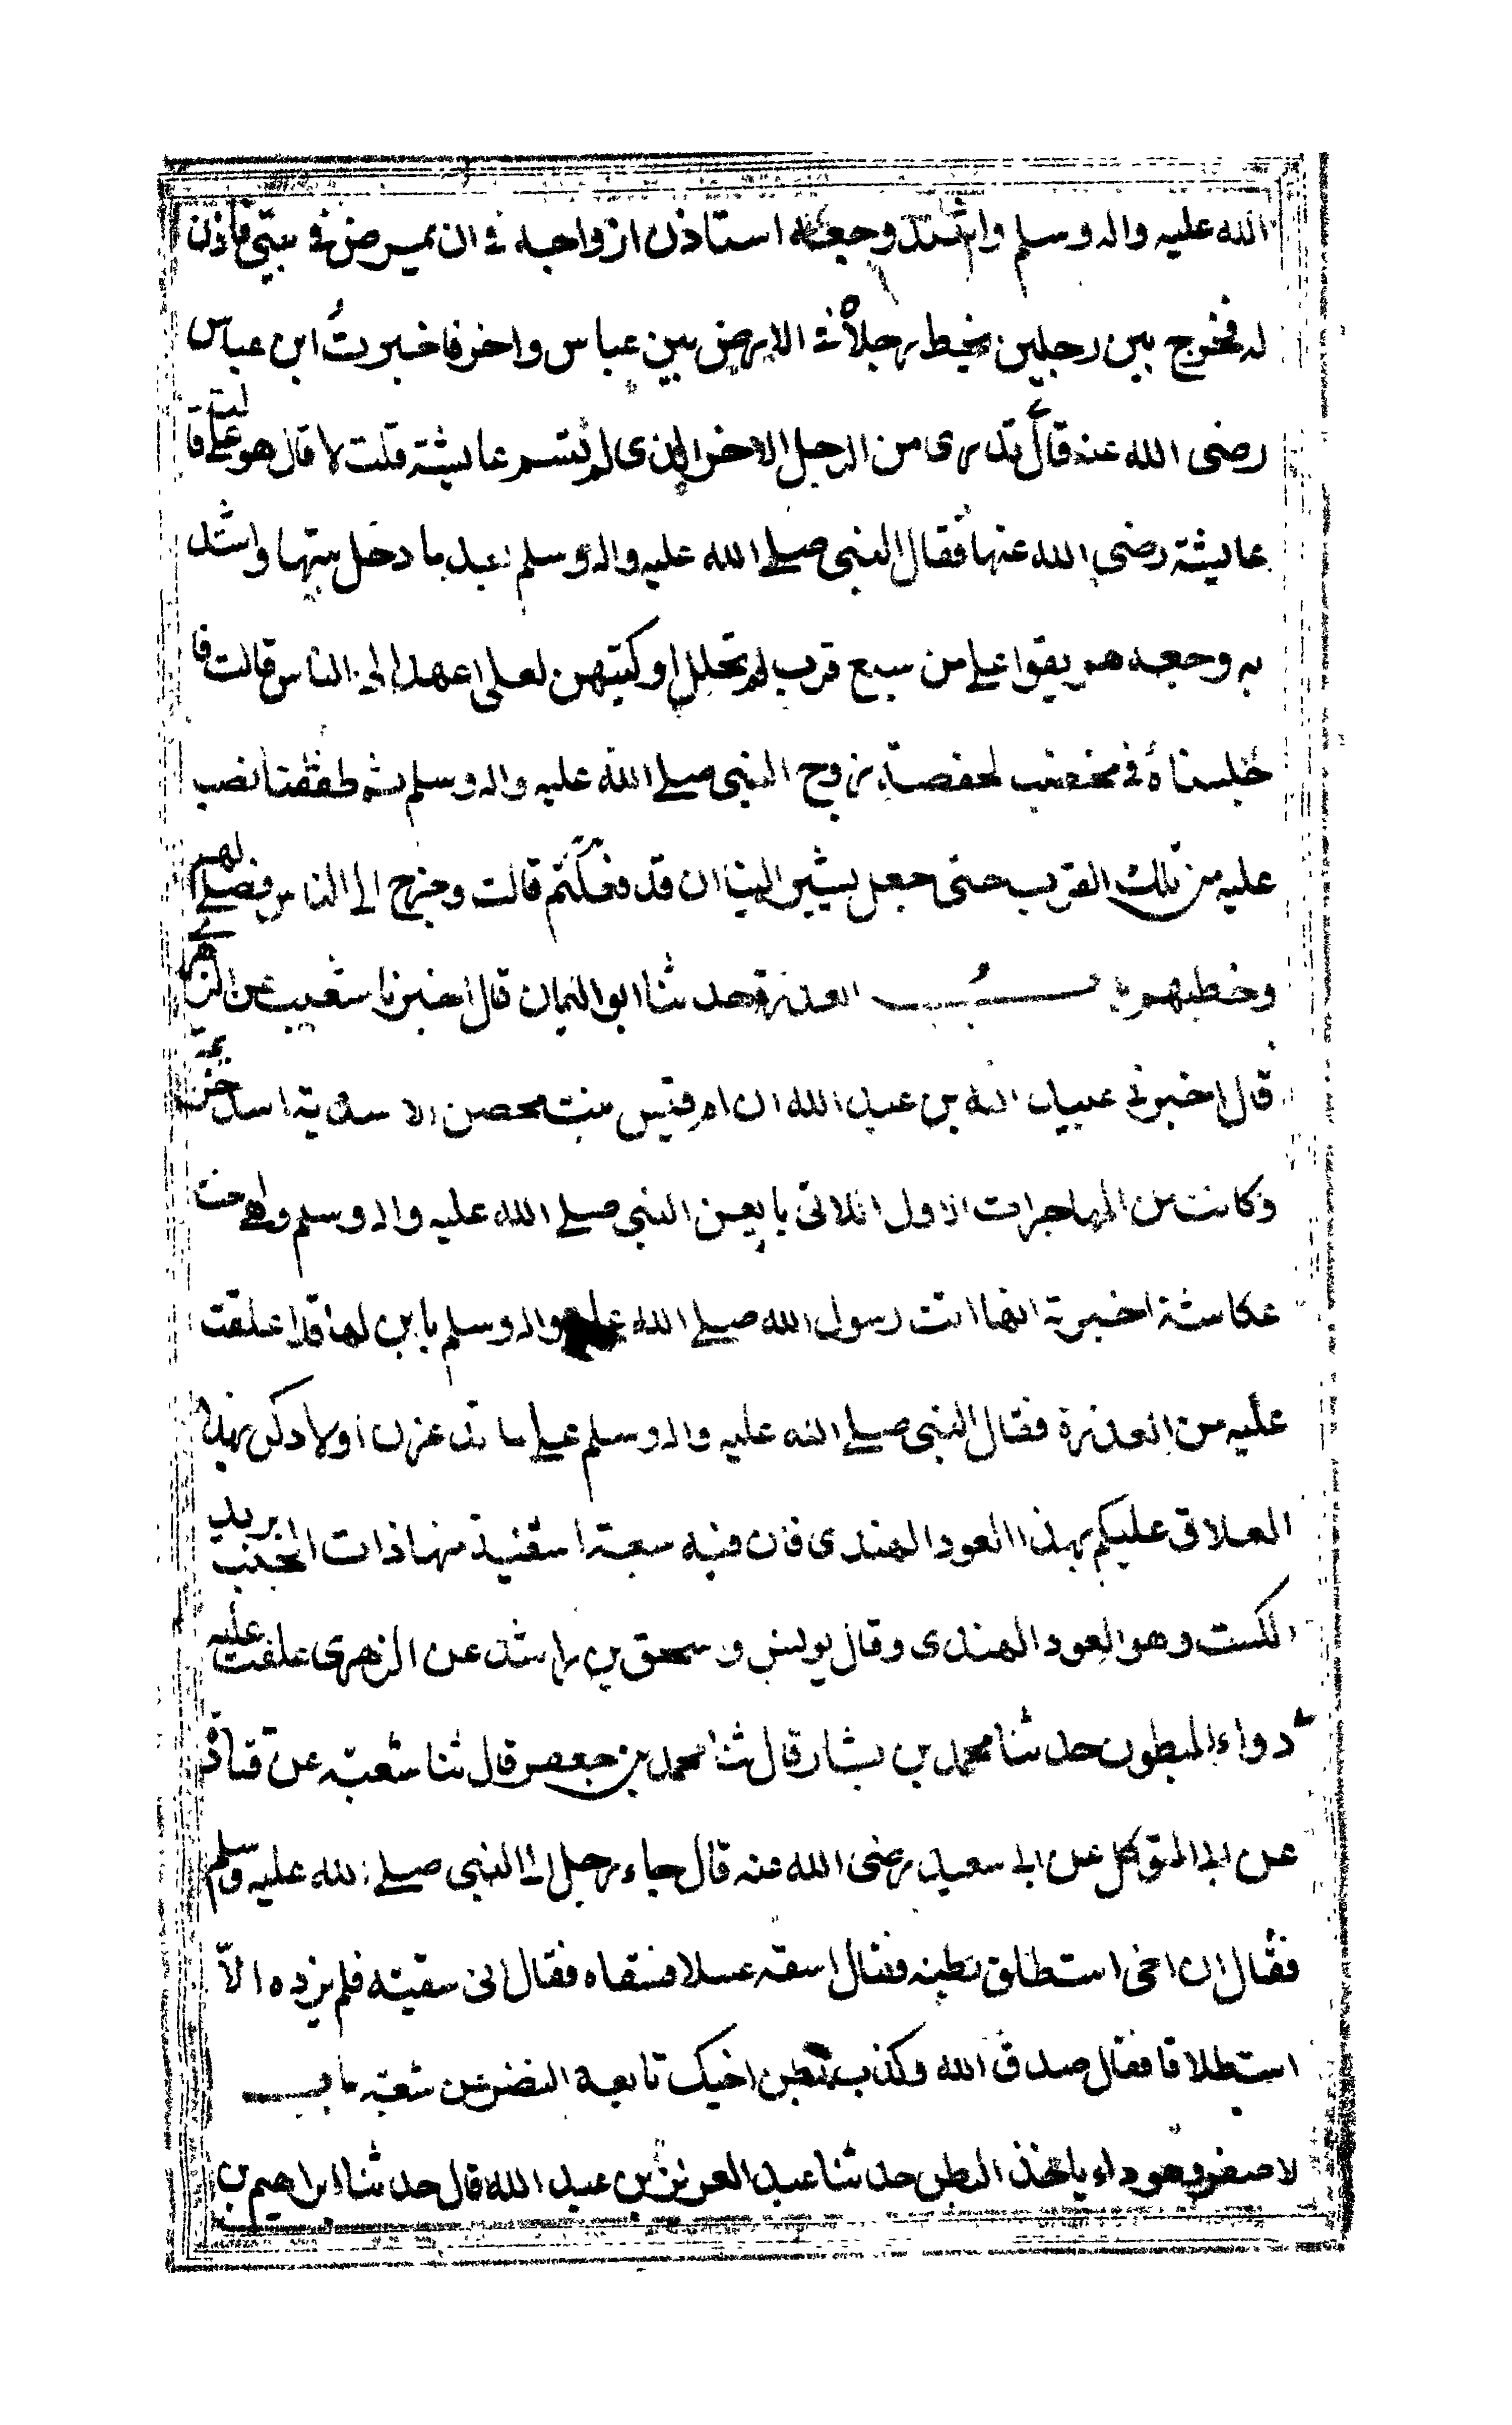 الله عليه واله وسلم واشتد وجعه استاذن ازواجه في ان يمرض في بيتي فاذن
له فخرج بين رجلين يخط رجلاه في الارض بين عباس واخر فاخبرت ابن عباس
رضى الله عنه قال تدرى من الرجل الاخر الذى لم تسم عايشة قلت لا قال هو على قالت
عايشة رضى الله عنها فقال النبى صلے الله عليه واله وسلم بعد ما دخل بيتها واشتد
به وجعه هريقوا على من سبع قرب لم تحلل اوكيتهن لعلى اعهد الى الناس قالت فا
جلسناه في مخضب لحفصة زوج النبى صلے الله عليه واله وسلم ثم طفقنا نصب
عليه من تلك القرب حتى جعل يشير الينا ان قد فعلتم قالت وخرج الى الناس فصلے لهم
وخطبهم باب العذرة حدثنا ابو اليمان قال اخبرنا شعيب عن الزهرى
قال اخبرنى عبيد الله بن عبد الله ان ام قيس بنت محصن الاسدية اسد خزيمة
وكانت من المهاجرات الاول اللاتى بايعن النبى صلے الله عليه واله وسلم وهى اخت
عكاشة اخبرته انها اتت رسول الله صلے الله عليه واله وسلم بابن لها قد اعلقت
عليه من العذرة فقال النبى صلے الله عليه واله وسلم على ما تدغرن اولادكن بهذا
العلاق عليكم بهذا العود الهندى فان فيه سبعة اشفية منها ذات الجنب يريد
الكست وهو العود الهندى وقال يونس و سحق بن راشد عن الزهرى علقت عليه
دواء المبطون حدثنا محمد بن بشار قال ثنا محمد بن جعفر قال ثنا شعبة عن قتادة
عن ابى المتوكل عن ابى سعيد رضى الله عنه قال جاء رجل الى النبى صلے الله عليه وسلم
فقال ان اخى استطلق بطنه فقال اسقه عسلا فسقاه فقال انى سقيته فلم يزده الاّ
استطلاقا فقال صدق الله وكذب بطن اخيك تابعه النضر عن شعبة باب
لا صفر وهو داء ياخذ البطن حدثنا عبد العزيز بن عبد الله قال حدثنا ابراهيم بن